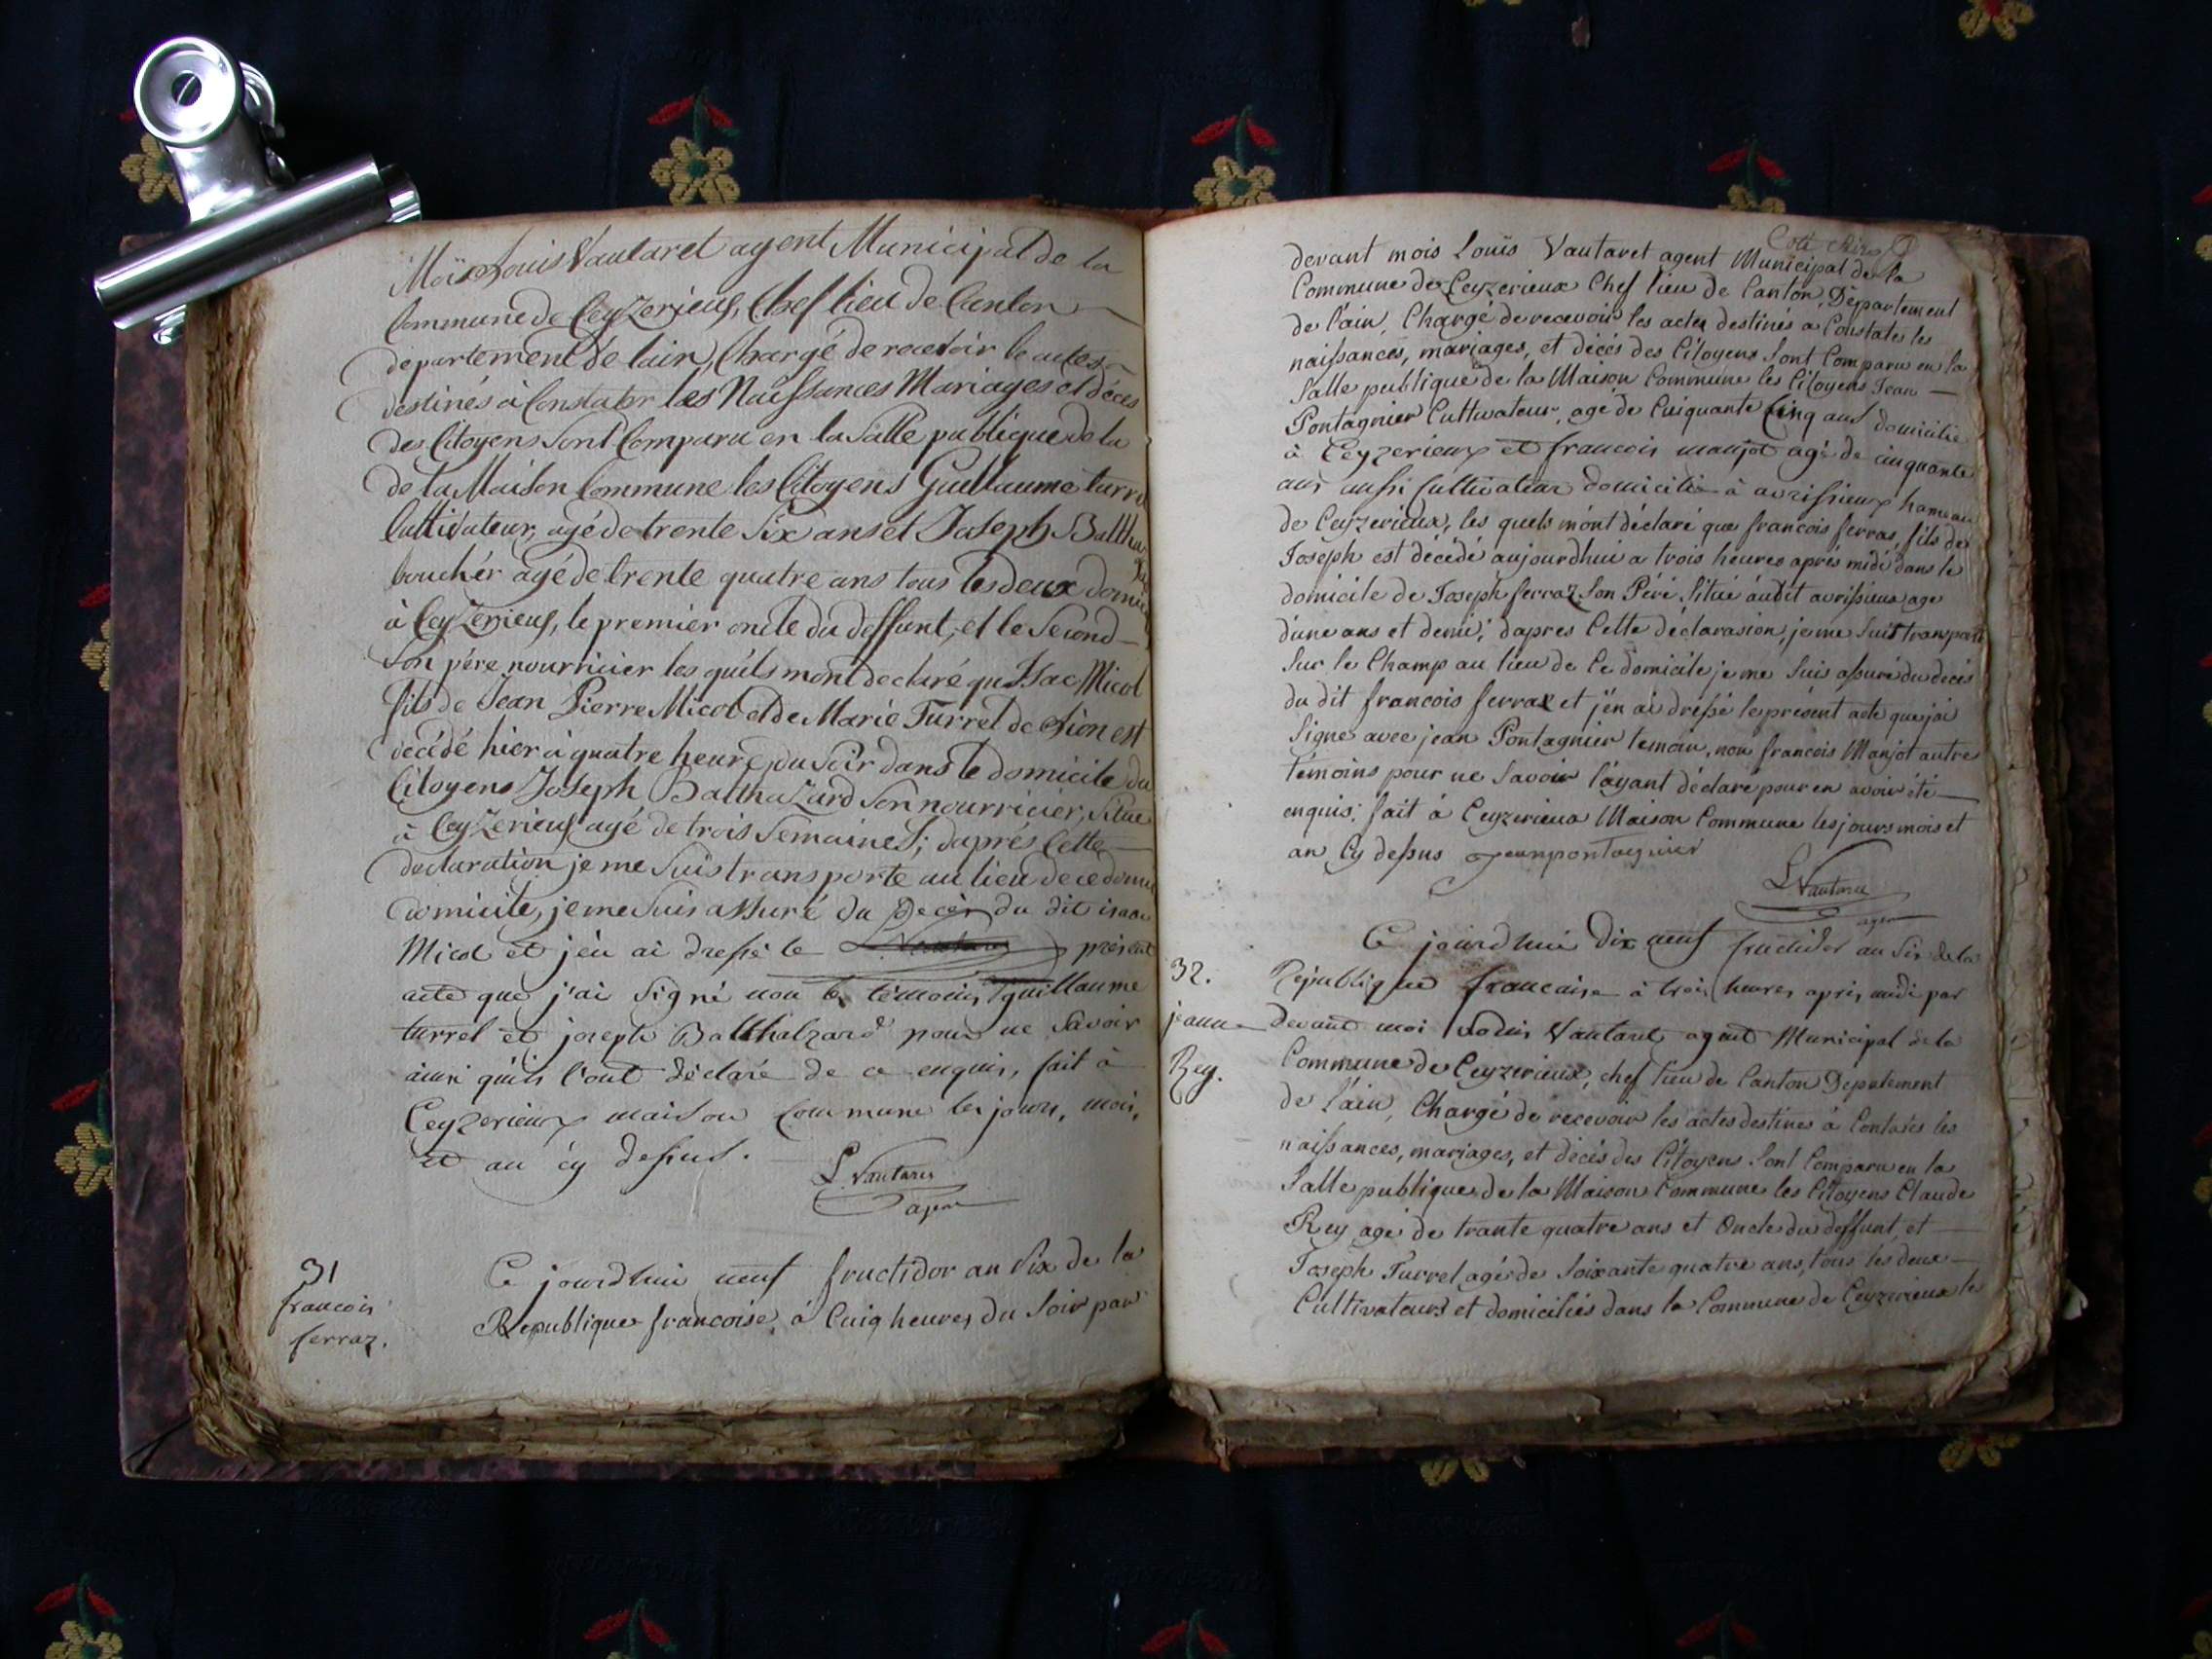 Moi Louis Vautaret agent Municipal de la
Commune de Ceyzerieux, Chef lieu de Canton
departement de lain, Chargé de recevoir le actes
destinés à Constater les Naissances Mariages et déces
des Citoyens sont Comparu en la Salle publique de la
de la Maison Commune les Citoyens Guillaume turrel
Cultivateur, agé de trente six ans et Joseph Baltha
bouchér agé de trente quatre ans tous les deux domici
à Ceyzerieux, le premier oncle du deffunt, et le Second
son pére nourricier les quels mont declaré que Isac Micol
fils de Jean Pierre Micol et de Marie Turrel de Lion est
decédé hier à quatre heure du Soir dans le domicile du
Citoyens Joseph Balthazard son nourricier, Situe
à Ceyzerieux agé de trois Semaines; daprés Cette
declaration je me Suis transporte au lieu de ce domi
domicile, je me Suis assuré du Decés du dit isaac
Micol et j'en ai dressé le présent
acte que j'ai Signé non le témoins guillaume
turrel et joseph Balthalzard pour ne Savoir
ainsi qu'ils l'ont déclaré de ce enquis, fait à
Ceyzerieux maison Commune les jours, mois,
et an cy dessus.
L. Vautaret
agent
31
francois
ferraz.
Ce jourdhui neuf fructidor an Six de la
Republique francoise, à Cinq heures du Soir par
devant mois Louis Vautaret agent Municipal de la
Commune de Ceyzerieux Chef lieu de Canton, Département
de l'ain, Chargé de recevoir les actes destinés a Constater les
naissances, mariages, et décés des Citoyens Sont Comparu en la
Salle publique de la Maison Commune les Citoyens Jean
Pontagnier Cultivateur, agé de Cinquante Cinq ans domicilie
à Ceyzerieux et francois manjot agé de cinquante
ans aussi Cultivateur domicilié à avrissieux hameau
de Ceyzerieux, les quels m'ont déclaré que francois ferras, fils de
Joseph est décédé aujourdhui a trois heures aprés midi dans le
domicile de Joseph ferraz Son Péré Situé audit avrissieux age
d'une ans et demi; dapres Cette déclarasion, je me Suis transporté
Sur le Champ au lieu de Ce domicile je me Suis assuré du décés
du dit francois ferraz et j'en ai dréssé le présent acte que jai
Signe avec jean Pontagnier temoin, non francois Manjot autre
témoins pour ne Savoir l'ayant déclaré pour en avoir été
enquis: fait à Ceyzerieux Maison Commune les jours mois et
an Cy dessus jeanpontagnier
L Vautaret
agent
32.
jeanne
Rey.
Ce jourdhui Dix neuf fructidor an Six de la
République francaise à trois heures aprés midi par
devant moi Louis Vautaret agent Municipal de la
Commune de Ceyzerieux, chef lieu de Canton Departement
de l'ain, Chargé de recevoir les actes destines à Contates les
naissances, mariages, et décés des Citoyens Sont Comparu en la
Salle publique de la Maison Commune les Citoyens Claude
Rey agé de trante quatre ans et Oncle du deffunt, et
Joseph Turrel agé de Soixante quatre ans, tous les deux
Cultivateurs et domiciliés dans la Commune de Ceyzerieux le